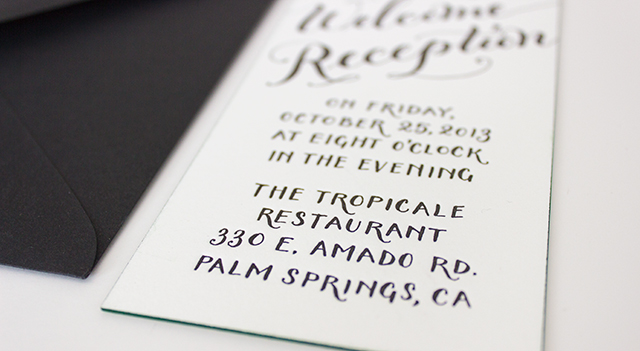 Welcome
Reception
ON FRIDAY,
OCTOBER 25, 2013
AT EIGHT O'CLOCK
IN THE EVENING
THE TROPICALE
RESTAURANT
330 E. AMADO RD.
PALM SPRINGS, CA